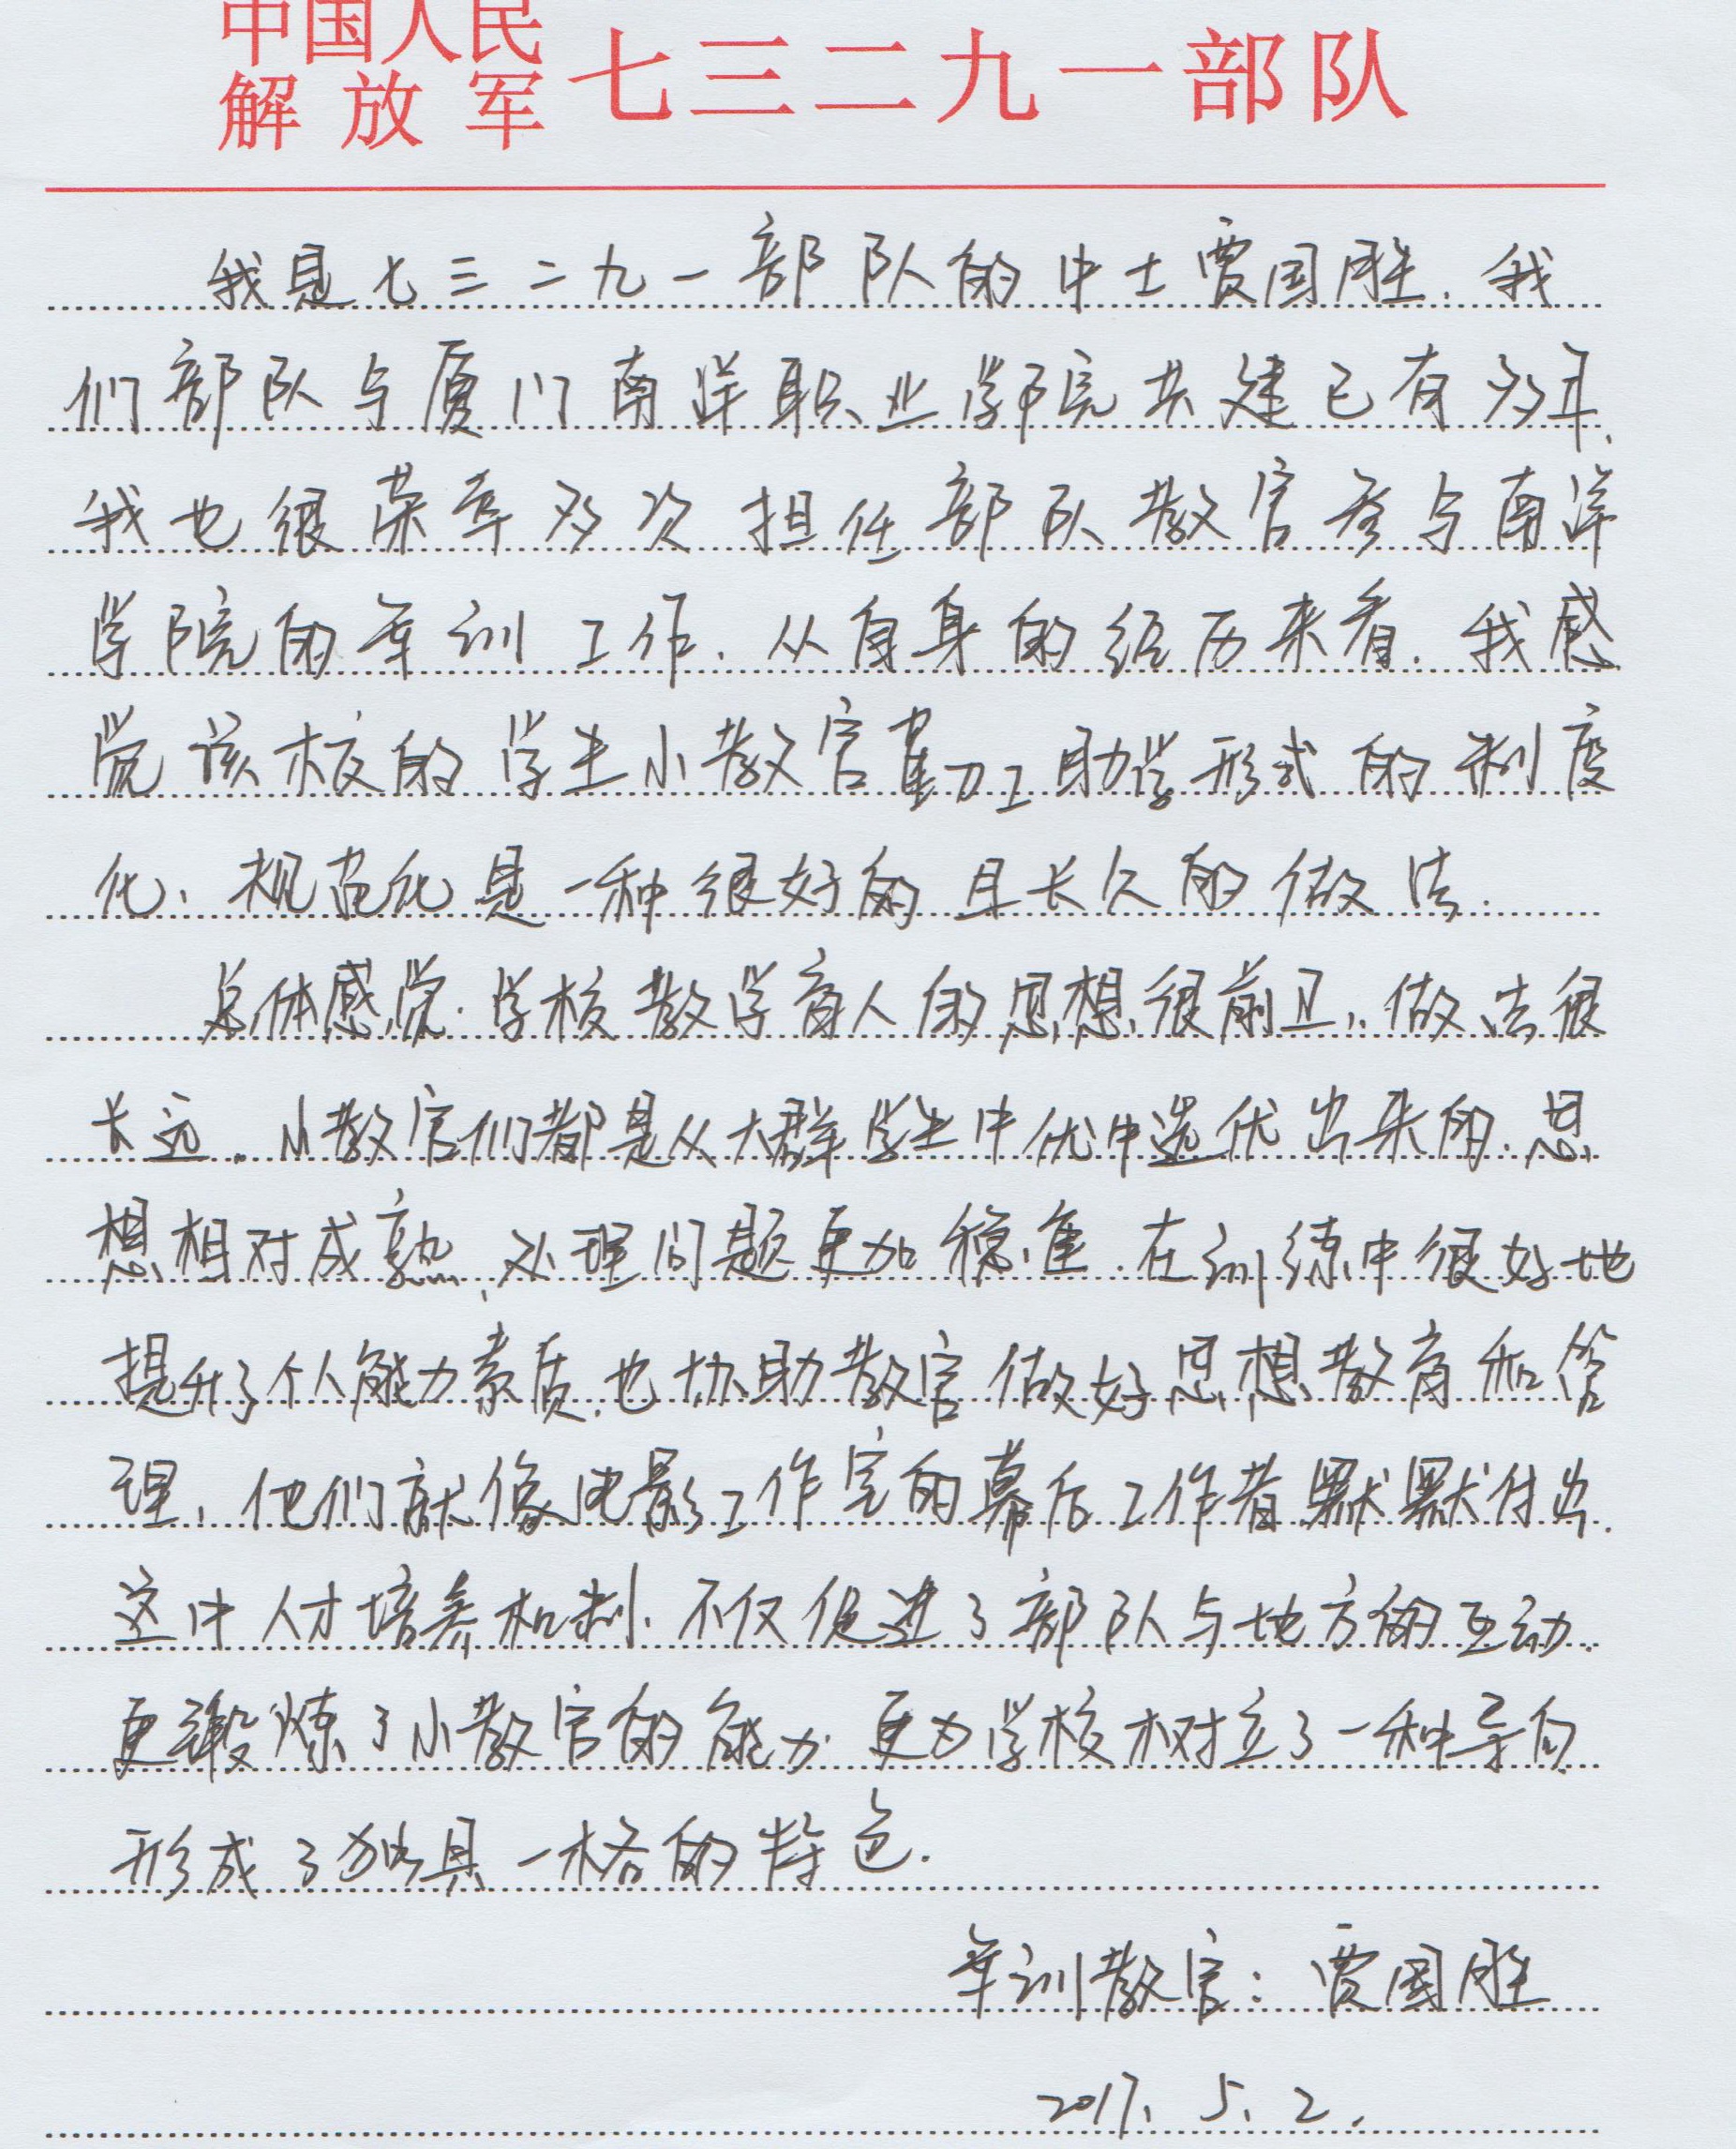 中国人民
解放军 七三二九一部队
我是七三二九一部队的中士贾国胜.我
们部队与厦门南洋职业学院共建已有多年.
我也很荣幸多次担任部队教官参与南洋
学院的军训工作.从自身的经历来看.我感
觉该校的学生小教官勤工助学形式的制度
化、规范化是一种很好的且长久的做法.
总体感觉.学校教学育人的思想很前卫,.做法很
长远.小教官们都是从大群学生中优中选优出来的.思
想相对成熟,处理问题更加稳准.在训练中很好地
提升了个人能力素质.也协助教官做好思想教育和管
理,他们就像电影工作室的幕后工作者默默付出.
这中人才培养机制.不仅促进了部队与地方的互动.
更锻炼了小教官的能力.更为学校树立了一种导向.
形成了独具一格的特色.
军训教官:贾国胜
2017.5.2.